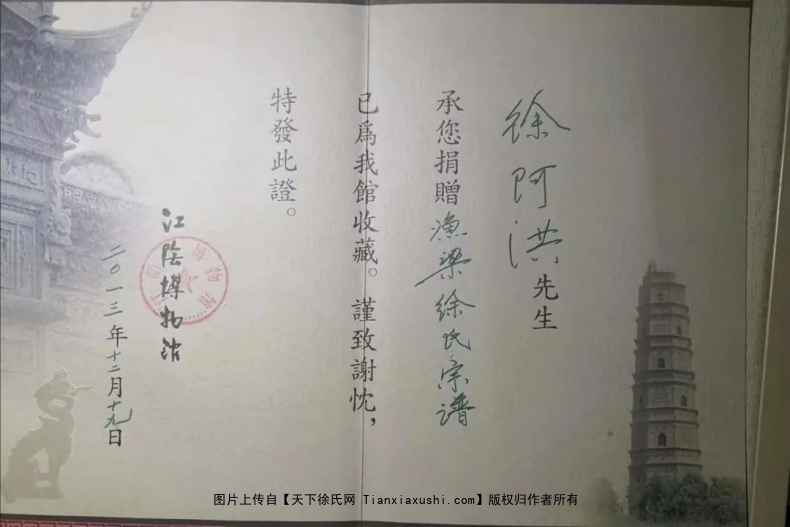 徐阿洪先生
承您捐贈渔梁徐氏宗谱
已爲我館收藏。謹致謝忱，
特發此證。
江陰博物馆
二〇一三年十二月十九日
图片上传自【天下徐氏网 Tianxiaxushi.com】版权归作者所有